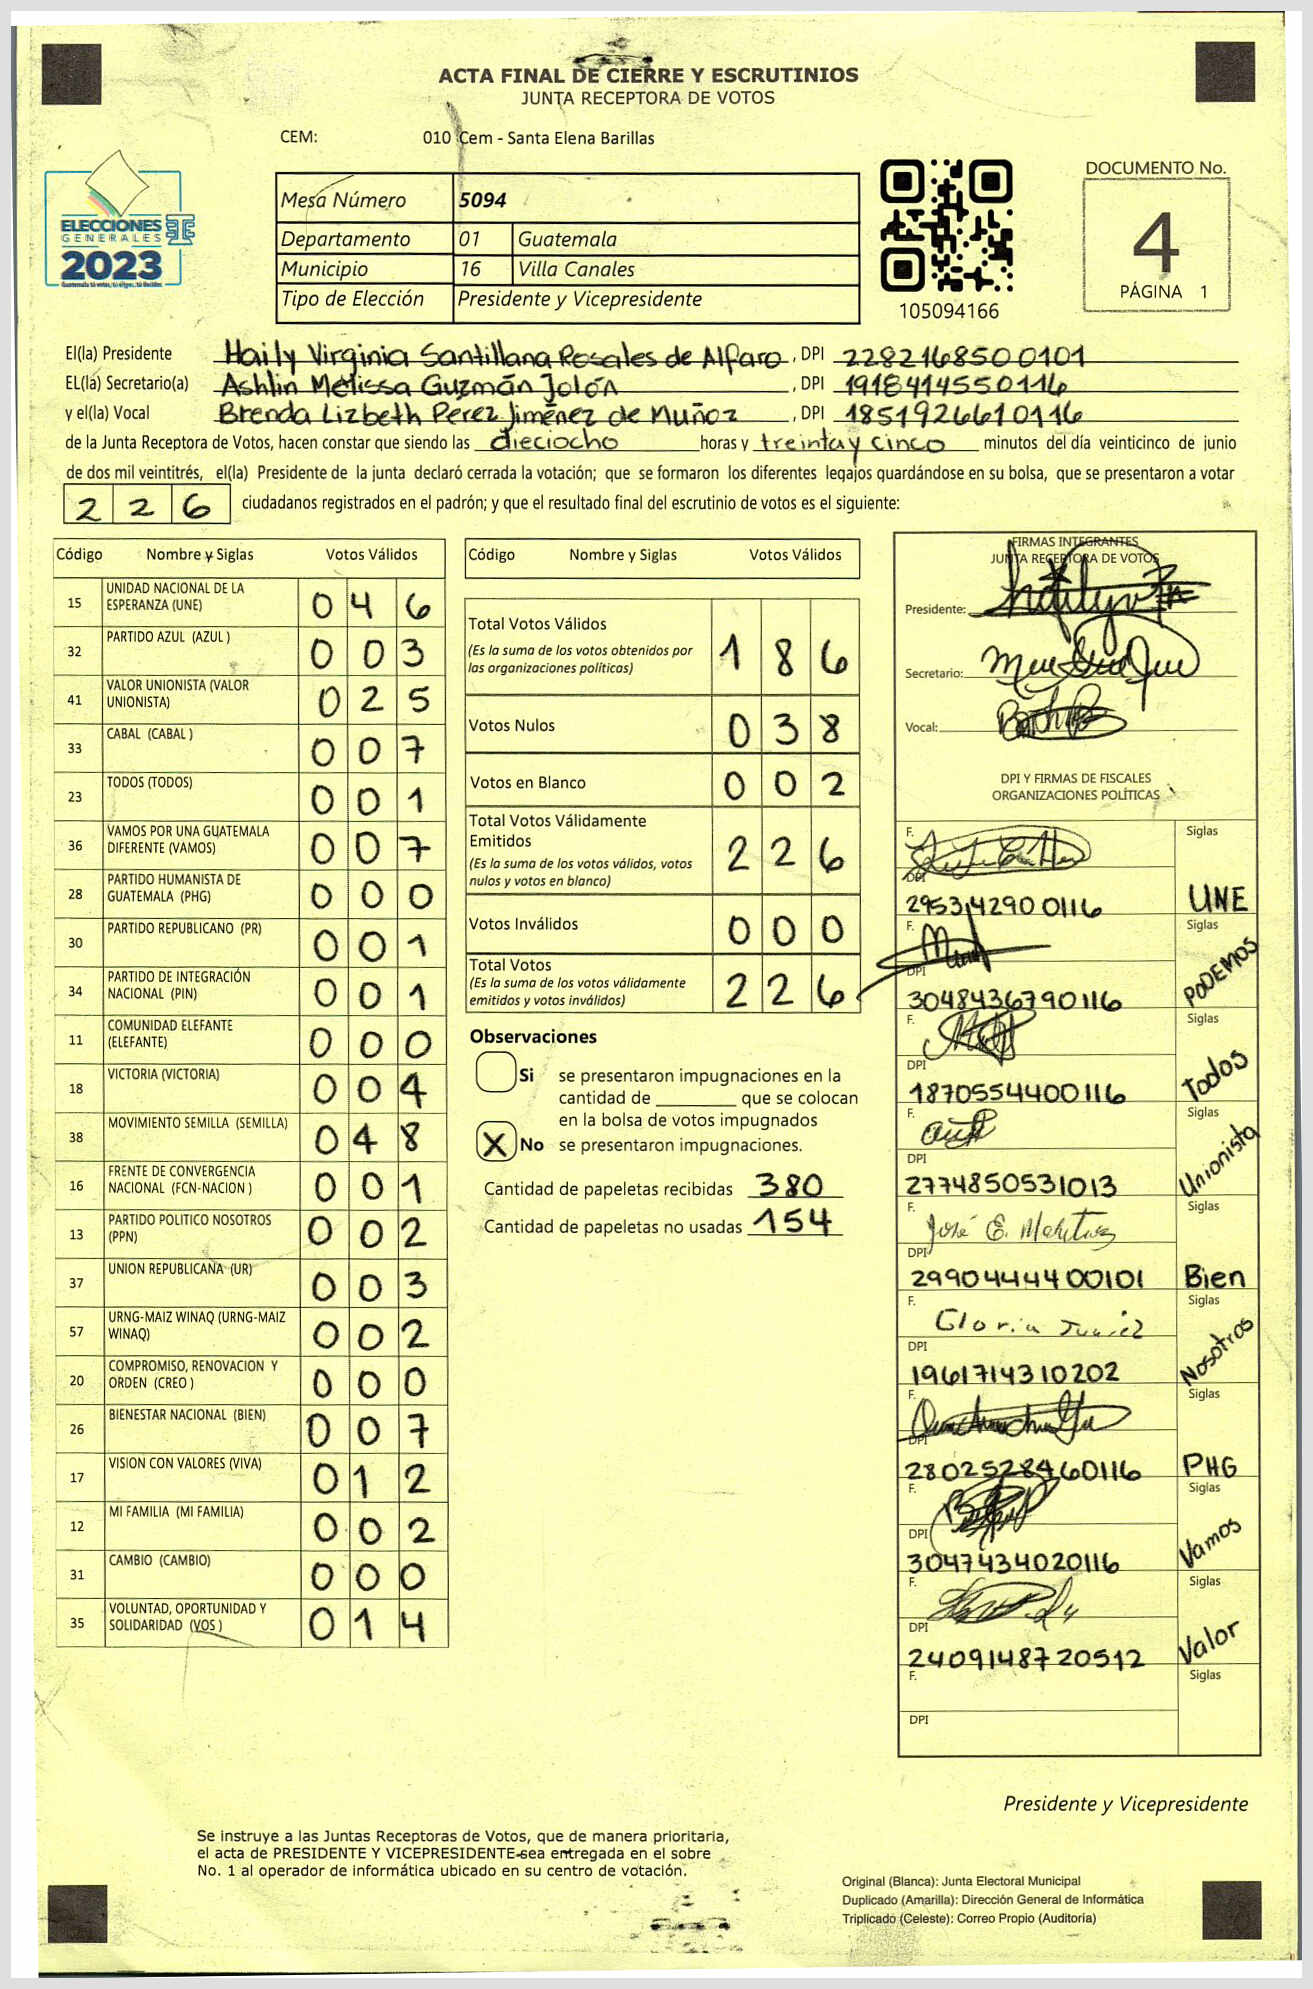 ACTA FINAL DE CIERRE Y ESCRUTINIOS
JUNTA RECEPTORA DE VOTOS
CEM: 010 Cem - Santa Elena Barillas
ELECCIONES
GENERALES
2023
Mesa Número 5094
Departamento 01 Guatemala
Municipio 16 Villa Canales
Tipo de Elección Presidente y Vicepresidente
105094166
DOCUMENTO No.
4
PÁGINA 1
El(la) Presidente Haily Virginia Santillana Rosales de Alfaro, DPI 2282168500101
EL(la) Secretario(a) Ashlin Melissa Guzmán Jolón, DPI 1918414550116
y el(la) Vocal Brenda Lizbeth Pérez Jiménez de Muñoz, DPI 1851926610116
de la Junta Receptora de Votos, hacen constar que siendo las dieciocho horas y treinta y cinco minutos del día veinticinco de junio
de dos mil veintitrés, el(la) Presidente de la junta declaró cerrada la votación; que se formaron los diferentes legajos quardándose en su bolsa, que se presentaron a votar
226 ciudadanos registrados en el padrón; y que el resultado final del escrutinio de votos es el siguiente:
Código Nombre y Siglas Votos Válidos
15 UNIDAD NACIONAL DE LA ESPERANZA (UNE) 046
32 PARTIDO AZUL (AZUL ) 003
41 VALOR UNIONISTA (VALOR UNIONISTA) 025
33 CABAL (CABAL ) 007
23 TODOS (TODOS) 001
36 VAMOS POR UNA GUATEMALA DIFERENTE (VAMOS) 007
28 PARTIDO HUMANISTA DE GUATEMALA (PHG) 000
30 PARTIDO REPUBLICANO (PR) 001
34 PARTIDO DE INTEGRACIÓN NACIONAL (PIN) 001
11 COMUNIDAD ELEFANTE (ELEFANTE) 000
18 VICTORIA (VICTORIA) 004
38 MOVIMIENTO SEMILLA (SEMILLA) 048
16 FRENTE DE CONVERGENCIA NACIONAL (FCN-NACION ) 001
13 PARTIDO POLITICO NOSOTROS (PPN) 002
37 UNION REPUBLICANA (UR) 003
57 URNG-MAIZ WINAQ (URNG-MAIZ WINAQ) 002
20 COMPROMISO, RENOVACION Y ORDEN (CREO ) 000
26 BIENESTAR NACIONAL (BIEN) 007
17 VISION CON VALORES (VIVA) 012
12 MI FAMILIA (MI FAMILIA) 002
31 CAMBIO (CAMBIO) 000
35 VOLUNTAD, OPORTUNIDAD Y SOLIDARIDAD (VOS ) 014
Código Nombre y Siglas Votos Válidos
Total Votos Válidos 186
(Es la suma de los votos obtenidos por
las organizaciones políticas)
Votos Nulos 038
Votos en Blanco 002
Total Votos Válidamente
Emitidos 226
(Es la suma de los votos válidos, votos
nulos y votos en blanco)
Votos Inválidos 000
Total Votos 226
(Es la suma de los votos válidamente
emitidos y votos inválidos)
Observaciones
Si se presentaron impugnaciones en la
cantidad de ________ que se colocan
en la bolsa de votos impugnados
X No se presentaron impugnaciones.
Cantidad de papeletas recibidas 380
Cantidad de papeletas no usadas 154
FIRMAS INTEGRANTES
JUNTA RECEPTORA DE VOTOS
Presidente:
Secretario:
Vocal:
DPI Y FIRMAS DE FISCALES
ORGANIZACIONES POLÍTICAS
F. Siglas
DPI
2953142900116 UNE
F. Siglas
DPI
3048436790116 PODEMOS
F. Siglas
DPI
1870554400116 Todos
F. Siglas
DPI
2774850531013 Unionista
F. José E. Martínez Siglas
DPI
2990444400101 Bien
F. Gloria Juárez Siglas
DPI
1961714310202 Nosotros
F. Siglas
DPI
2802528460116 PHG
F. Siglas
DPI
3047434020116 Vamos
F. Siglas
DPI
2409148720512 Valor
F. Siglas
DPI
Presidente y Vicepresidente
Se instruye a las Juntas Receptoras de Votos, que de manera prioritaria,
el acta de PRESIDENTE Y VICEPRESIDENTE sea entregada en el sobre
No. 1 al operador de informática ubicado en su centro de votación.
Original (Blanca): Junta Electoral Municipal
Duplicado (Amarilla): Dirección General de Informática
Triplicado (Celeste): Correo Propio (Auditoria)